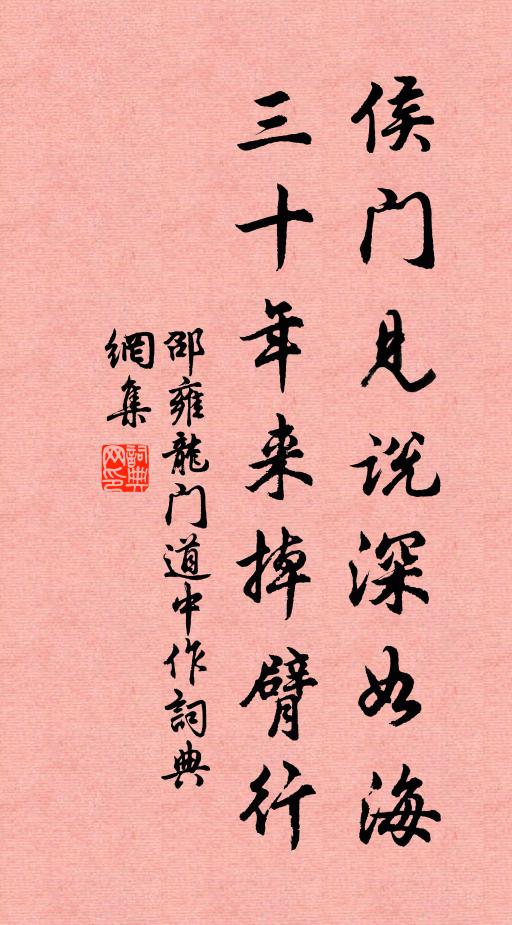 侯门见说深如海
三十年来掉臂行
邵雍龍门道中作詞典
網集
詞典网印